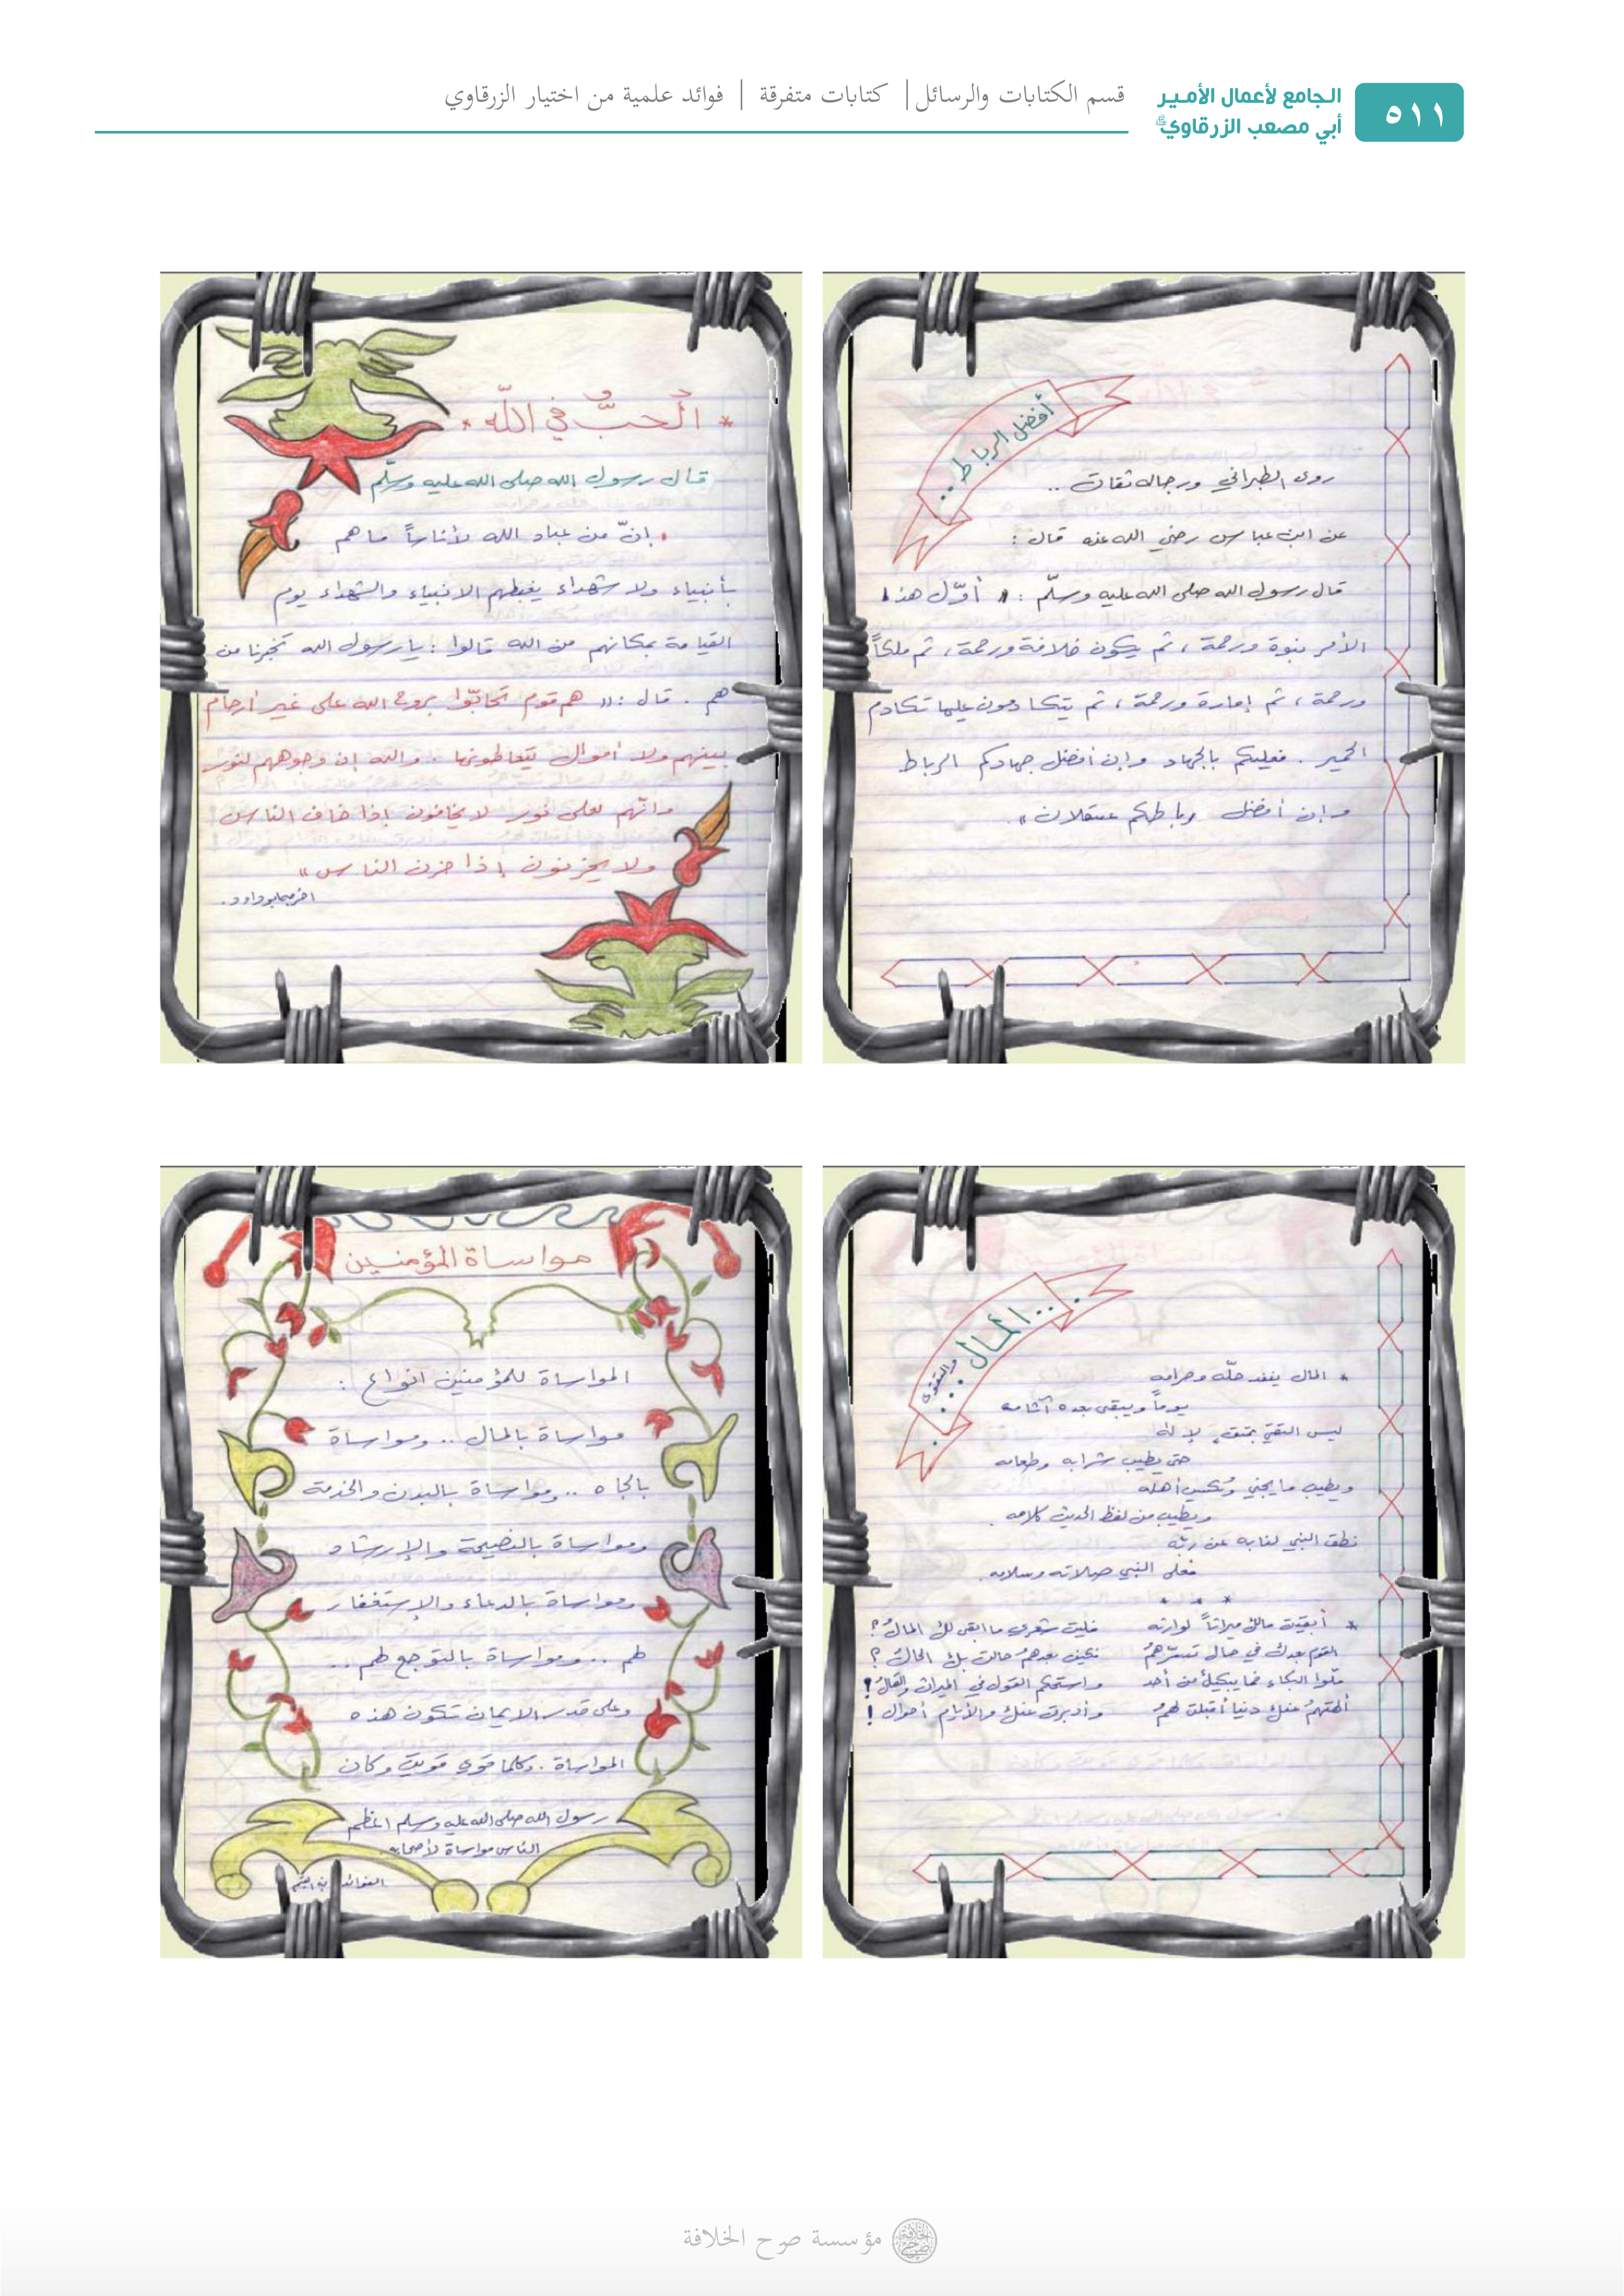 ٥١١
الجامع لأعمال الأمير
أبي مصعب الزرقاوي
قسم الكتابات والرسائل | كتابات متفرقة | فوائد علمية من اختيار الزرقاوي
أفضل الرباط ..
روى الطبراني ورجاله ثقات ..
عن ابن عباس رضي الله عنه قال :
قال رسول الله صلى الله عليه وسلّم : « أوّل هذا
الأمر نبوة ورحمة ، ثم يكون خلافة ورحمة ، ثم ملكاً
ورحمة ، ثم إمارة ورحمة ، ثم يتكادمون عليها تكادم
الحمير . فعليكم بالجهاد وإن أفضل جهادكم الرباط
وإن أفضل رباطكم عسقلان » .
* الحبُّ في اللّه *
قال رسول الله صلى الله عليه وسلّم
إنّ من عباد الله لأناساً ما هم
بأنبياء ولا شهداء يغبطهم الانبياء والشهداء يوم
القيامة بمكانهم من الله قالوا : يا رسول الله تخبرنا من
هم . قال : « هم قوم تحابّوا بروح الله على غير أرحام
بينهم ولا أموال يتعاطونها . والله إن وجوههم لنور
وانّهم لعلى نور لا يخافون إذا خاف الناس
ولا يحزنون إذا حزن الناس »
اخرجه ابو داود .
المال والتقوى
* المال ينفد حلّه وحرامه
يوماً ويبقى بعده آثامه
ليس التقيّ بمتقٍ لإلهه
حتى يطيب شرابه وطعامه
ويطيب ما يجني وتكسب أهله
ويطيب من لفظ الحديث كلامه .
نطق النبي لنا به عن ربّه
فعلى النبي صلاته وسلامه .
* * *
* أبقيت مالك ميراثاً لوارثه فليت شعري ما ابقى لك المالُ ؟
القوم بعدك في حال تسرّهمُ فكيف بعدهمُ حالت بك الحالُ ؟
ملّوا البكاء فما يبكيك من أحد واستحكم القول في الميراث والقالُ !
ألهتهمُ عنك دنيا أقبلت لهمُ وأدبرت عنك والأيام أحوال !
مواساة المؤمنين
المواساة للمؤمنين انواع :
مواساة بالمال .. ومواساة
بالجاه .. ومواساة بالبدن والخدمة
ومواساة بالنصيحة والإرشاد
ومواساة بالدعاء والإستغفار
لهم .. ومواساة بالتوجع لهم ..
وعلى قدر الايمان تكون هذه
المواساة . وكلما قوي قويت وكان
رسول الله صلى الله عليه وسلم اعظم
الناس مواساة لأصحابه .
الفوائد
مؤسسة صرح الخلافة